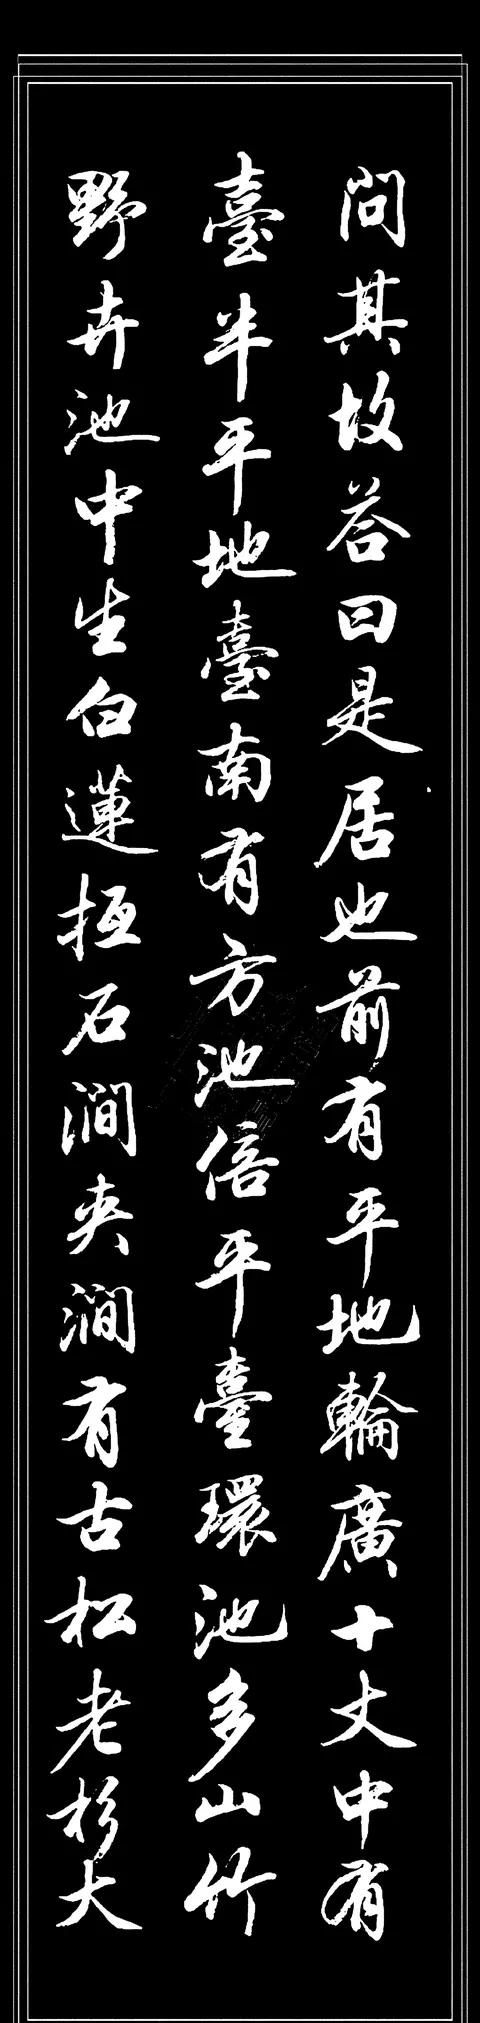 問其故荅曰是居也前有平地輪廣十丈中有
臺半平地臺南有方池倍平臺環池多山竹
野卉池中生白蓮抵石澗夾澗有古松老杉大